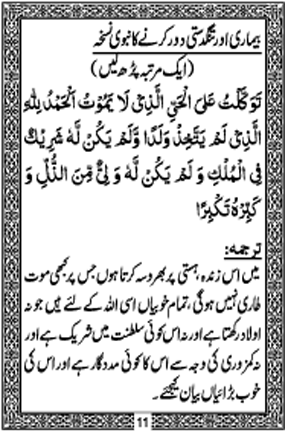 بیماری اور تنگدستی دور کرنے کا نبوی نسخہ
(ایک مرتبہ پڑھ لیں)
تَوَکَّلْتُ عَلَی الْحَیِّ الَّذِیْ لَا یَمُوْتُ اَلْحَمْدُ لِلّٰہِ
الَّذِیْ لَمْ یَتَّخِذْ وَلَدًا وَّلَمْ یَکُنْ لَّہٗ شَرِیْكٌ
فِی الْمُلْكِ وَ لَمْ یَکُنْ لَّہٗ وَلِیٌّ مِّنَ الذُّلِّ وَ
کَبِّرْہُ تَکْبِیْرًا
ترجمہ:
میں اس زندہ، ہستی پر بھروسہ کرتا ہوں جس پر کبھی موت
طاری نہیں ہوگی، تمام خوبیاں اسی اللہ کے لئے ہیں جو نہ
اولاد رکھتا ہے اور نہ اس کوئی سلطنت میں شریک ہے اور
نہ کمزوری کی وجہ سے اس کا کوئی مددگار ہے اور اس کی
خوب بڑائیاں بیان کیجئے۔
11